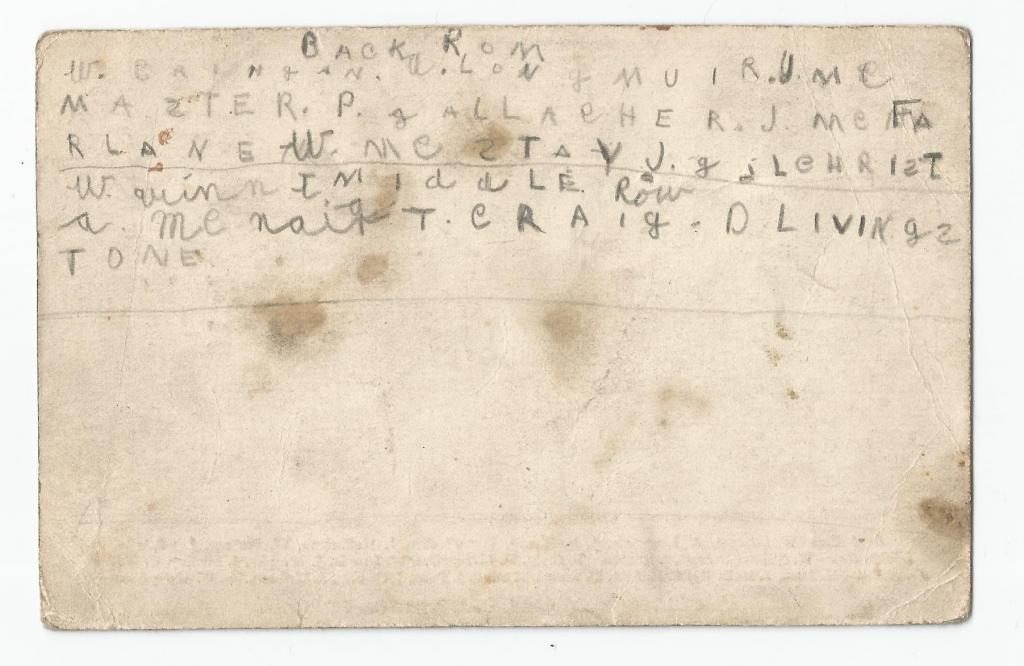 BACK ROM
W. CAIRNgAN. W. LONgMUIR. J. MC
MASTER. P. gALLACHER. J. MCFA
RLANE W. MC STAY J. giLCHRIST
W. quinn IMIddLE Row
a. MC nair T. CRAIg. D LIVINgS
TONE